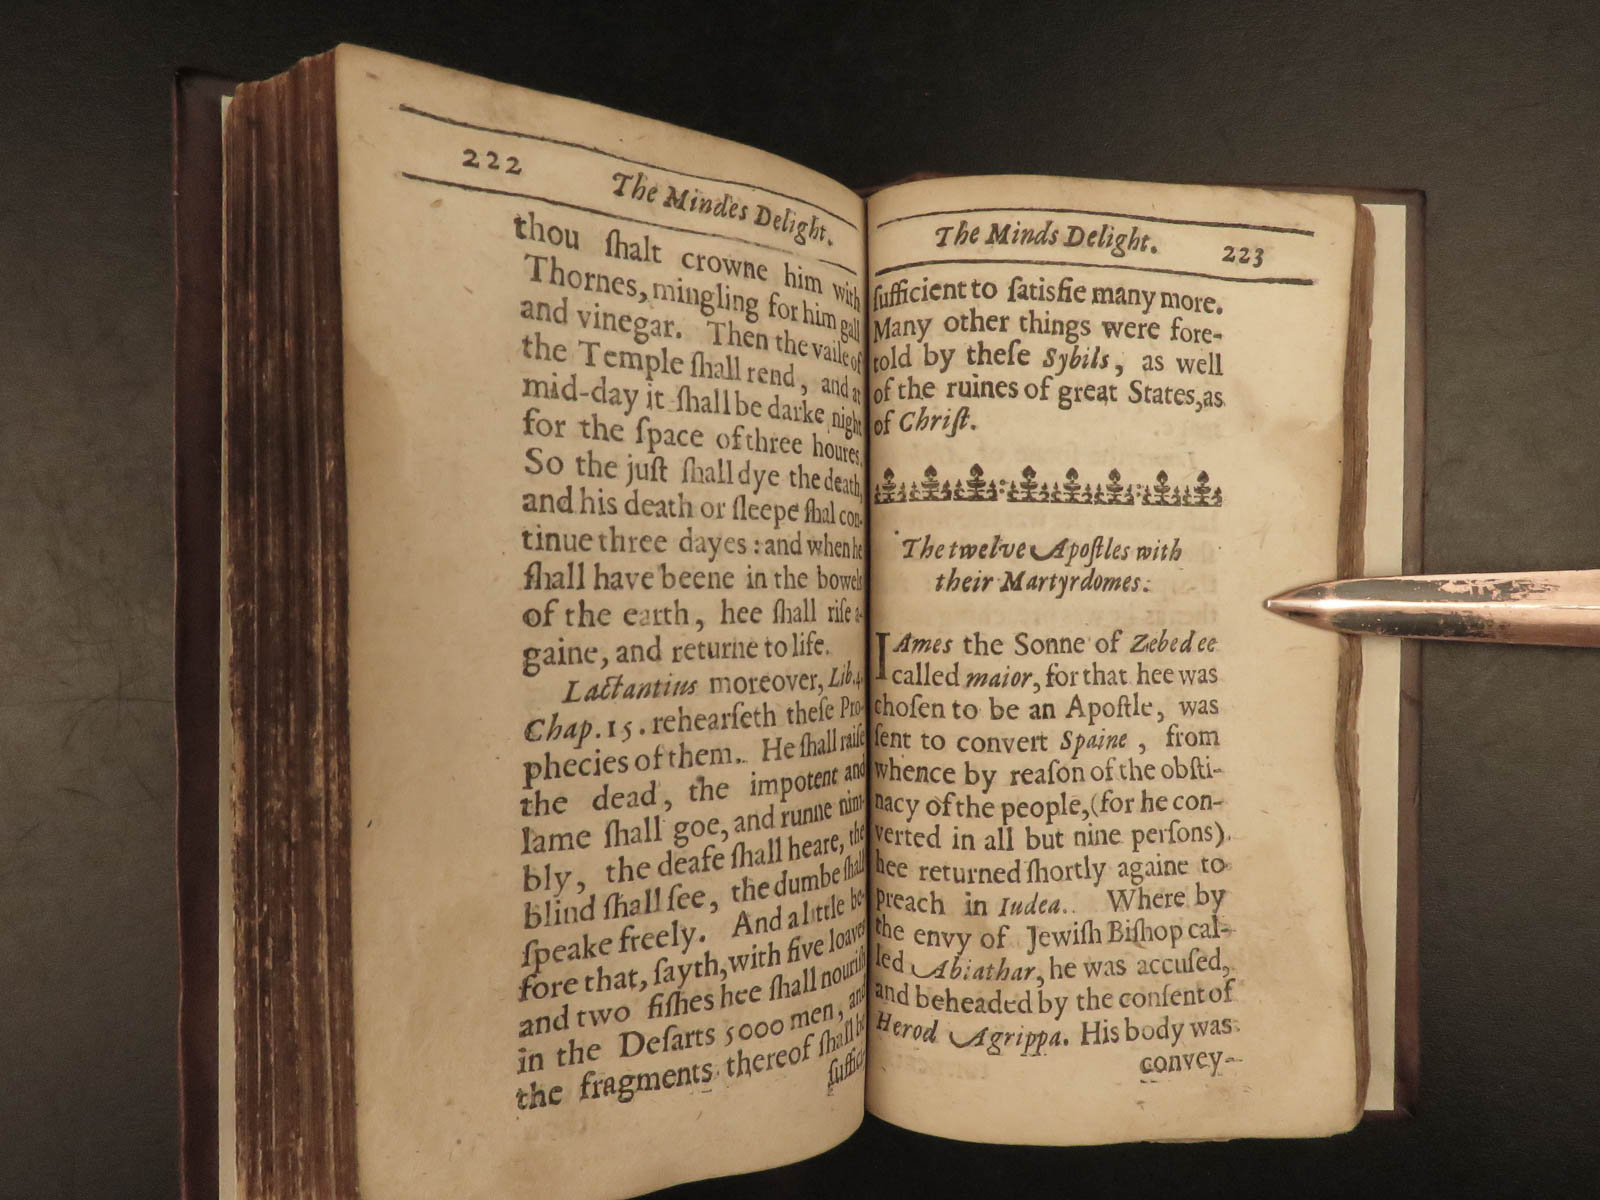 222
The Mindes Delight.
thou ſhalt crowne him with
Thornes, mingling for him gall
and vinegar. Then the vaile of
the Temple ſhall rend, and at
mid-day it ſhall be darke night
for the ſpace of three houres.
So the juſt ſhall dye the death,
and his death or ſleepe ſhal con-
tinue three dayes : and when he
ſhall have beene in the bowels
of the earth, hee ſhall riſe a-
gaine, and returne to life.
Lactantius moreover, Lib. 4.
Chap. 15. rehearſeth theſe Pro-
phecies of them. He ſhall raiſe
the dead, the impotent and
lame ſhall goe, and runne nim-
bly, the deafe ſhall heare, the
blind ſhall ſee, the dumbe ſhall
ſpeake freely. And a little be-
fore that, ſayth, with five loaves
and two fiſhes hee ſhall nouriſh
in the Deſarts 5000 men, and
the fragments thereof ſhall be
ſuffici-
The Minds Delight. 223
ſufficient to ſatisfie many more.
Many other things were fore-
told by theſe Sybils, as well
of the ruines of great States, as
of Chriſt.
The twelve Apoſtles with
their Martyrdomes.
IAmes the Sonne of Zebedee
called maior, for that hee was
choſen to be an Apoſtle, was
ſent to convert Spaine, from
whence by reaſon of the obſti-
nacy of the people, (for he con-
verted in all but nine perſons)
hee returned ſhortly againe to
preach in Iudea. Where by
the envy of Jewiſh Biſhop cal-
led Abiathar, he was accuſed,
and beheaded by the conſent of
Herod Agrippa. His body was
convey-